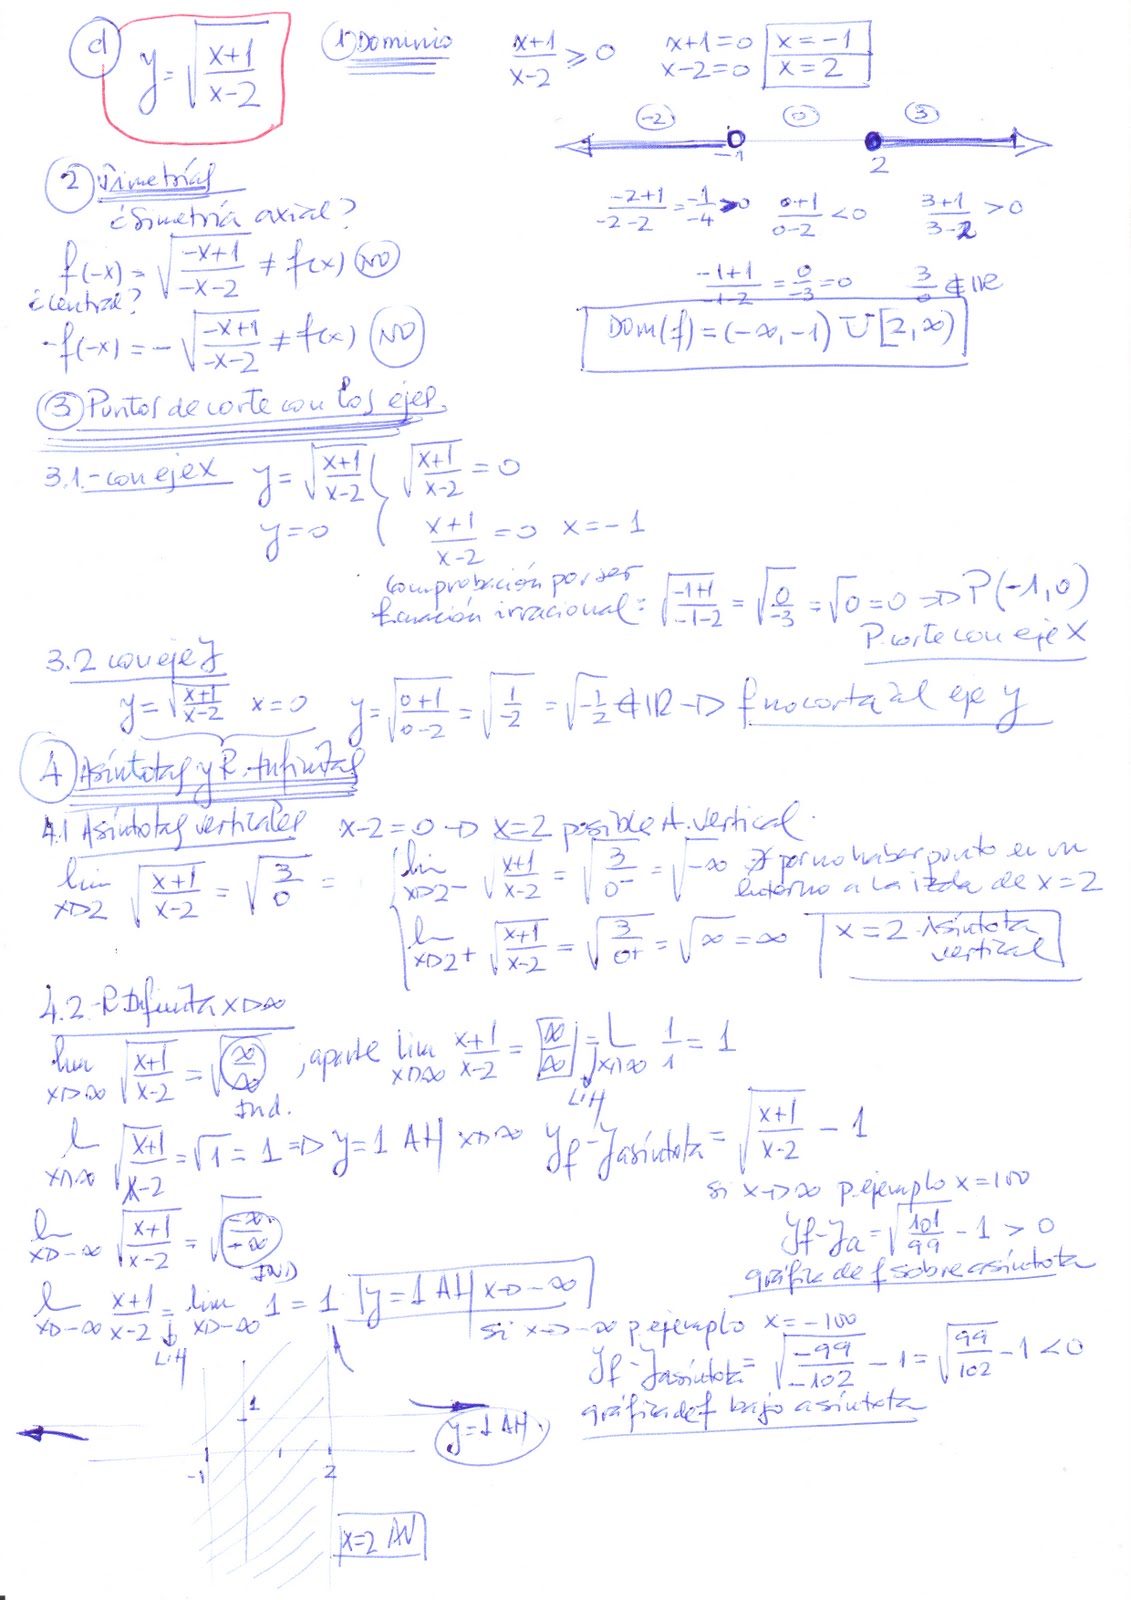 d) y = √((x+1)/(x-2))
① Dominio (x+1)/(x-2) ≥ 0 x+1=0 x=-1
x-2=0 x=2
-2 0 3
-1 2
(-2+1)/(-2-2) = -1/-4 > 0 (0+1)/(0-2) < 0 (3+1)/(3-2) > 0
(-1+1)/(-1-2) = 0/-3 = 0 3/0 ∉ IR
Dom(f) = (-∞, -1) ∪ [2, ∞)
② Simetrías
¿Simetría axial?
f(-x) = √((-x+1)/(-x-2)) ≠ f(x) NO
¿Central?
-f(-x) = -√((-x+1)/(-x-2)) ≠ f(x) NO
③ Puntos de corte con los ejes
3.1.- con eje X y = √((x+1)/(x-2)) √((x+1)/(x-2)) = 0
y = 0 (x+1)/(x-2) = 0 x = -1
Comprobación por ser
Ecuación irracional = √((-1+1)/(-1-2)) = √(0/-3) = √0 = 0 ⇒ P(-1,0)
P. corte con eje X
3.2 con eje y
y = √((x+1)/(x-2)) x=0 y = √((0+1)/(0-2)) = √(1/-2) = √(-1/2) ∉ IR → f no corta al eje y
④ Asíntotas y R. Infinitas
4.1 Asíntotas verticales x-2=0 → x=2 posible A. vertical.
lim x→2 √((x+1)/(x-2)) = √(3/0) =
lim x→2- √((x+1)/(x-2)) = √(3/0-) = √-∞ ∄ por no haber punto en un
entorno a la izda de x=2
lim x→2+ √((x+1)/(x-2)) = √(3/0+) = √∞ = ∞ x=2 Asíntota
vertical
4.2-R Infinita x→∞
lim x→∞ √((x+1)/(x-2)) = √(∞/∞) Ind. , aparte lim x→∞ (x+1)/(x-2) = [∞/∞] = L'H L x→∞ 1/1 = 1
L x→∞ √((x+1)/(x-2)) = √1 = 1 ⇒ y=1 AH x→∞ yf - yasíntota = √((x+1)/(x-2)) - 1
si x→∞ p.ejemplo x=100
L x→-∞ √((x+1)/(x-2)) = √(-∞/+∞) IND
yf-ya = √(101/99) - 1 > 0
gráfica de f sobre asíntota
L x→-∞ (x+1)/(x-2) = L'H lim x→-∞ 1 = 1 y=1 AH x→-∞
si x→-∞ p.ejemplo x=-100
yf-yasíntota = √(-99/-102) - 1 = √(99/102) - 1 < 0
gráfica de f bajo asíntota
1
y=1 AH.
-1 2
x=2 AV